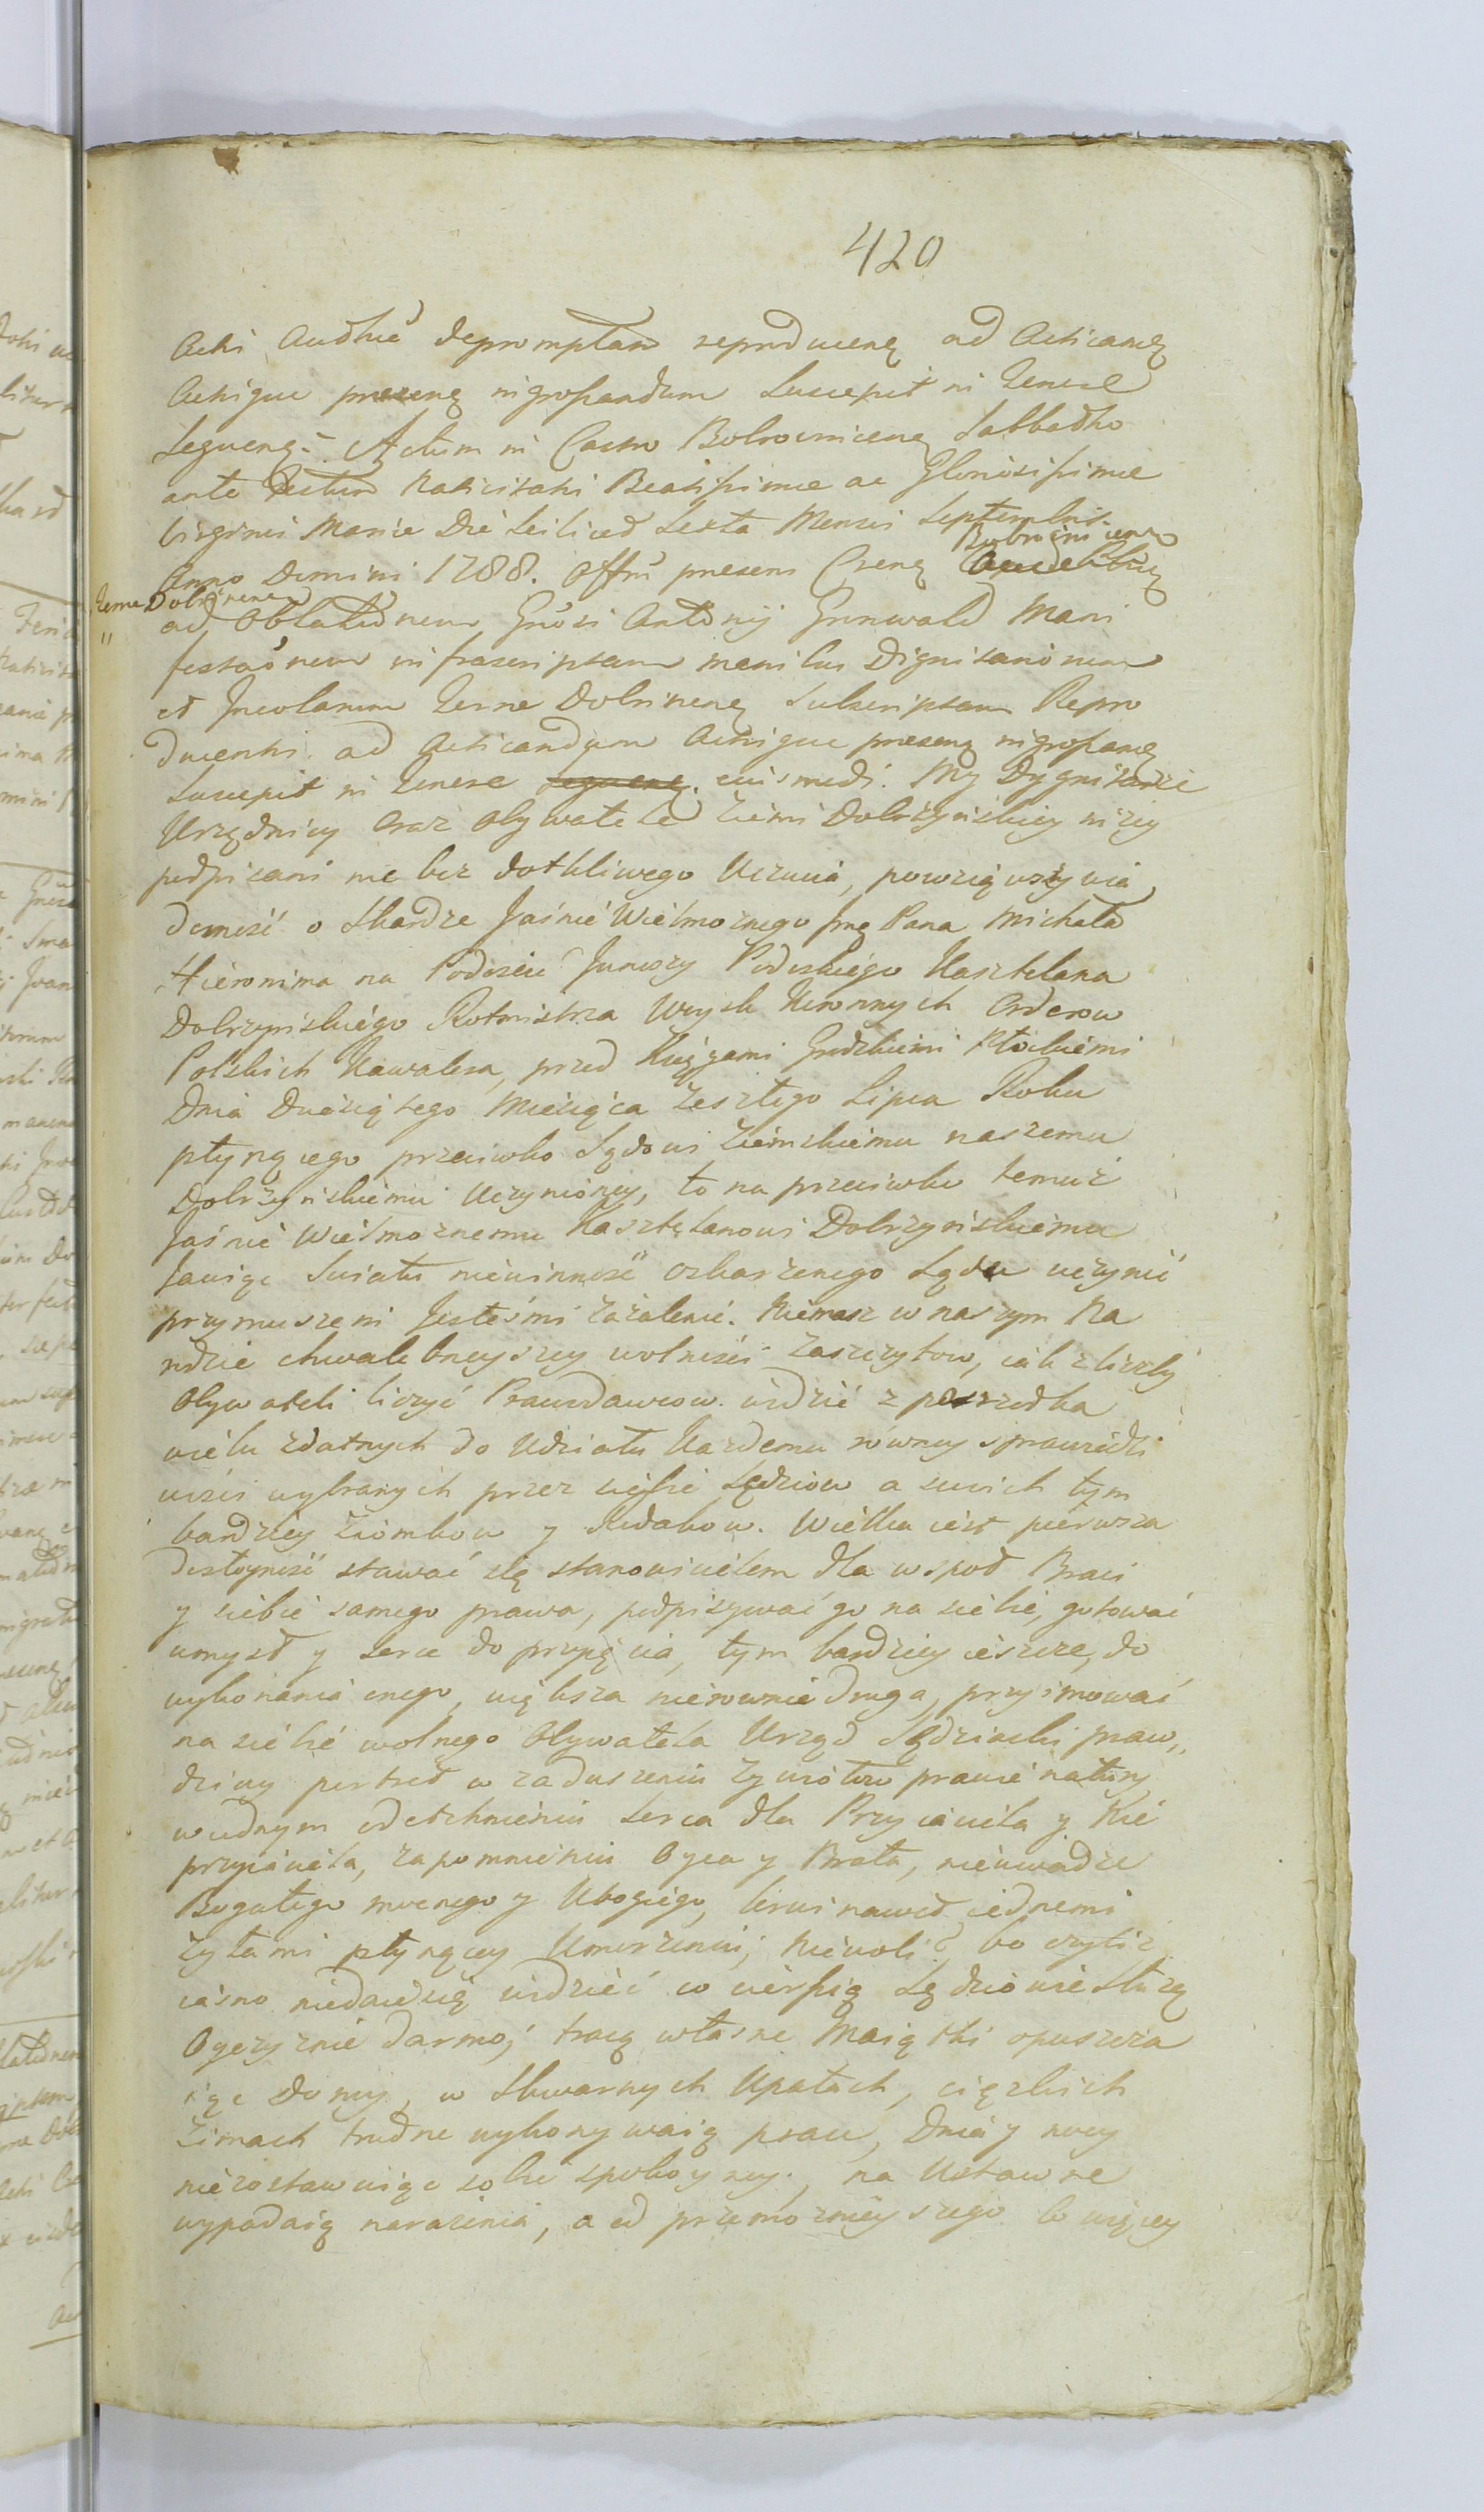 420
Acti Authce depromptam reproducenę ad Acticanę
Actique presenę ingrossandum Suscepit in Tenore
Sequenę. Actum in Castro Bobrownicenę Sabbatho
ante Festum Nativitatis Beatissimæ ac Gloriosissimæ
Virginis Mariæ Die Scilicet Sexta Mensis Septembris
Anno Domini 1788. Offm presens Crenę Bobrownicense
Terræ Dobrinenę
ad Oblationem Gnosi Antonij Grunwald Mani
festaōnem infrascriptam manibus Dignitariorum
et Incolarum Terræ Dobrinenę Subscriptam Repro
ducentis ad Acticandum Actique presenę ingrossanę
Suscepit in Tenore sequenę. eiusmodi. My Dygnitarze
Urzędnicy oraz Obywatele Ziemi Dobrzyńskiey niżey
podpisani nie bez dotkliwego Uczucia, powziąwszy wia
domość o Skardze Jaśnie Wielmożnego Jmę Pana Michała
Hieronima na Podosiu Junoszy Podoskiego Kasztelana
Dobrzyńskiego Rotmistrza Woysk Koronnych Orderow
Polskich Kawalera, przed Księgami Grodzkiemi Płockiemi
Dnia Dwudziątego Miesiąca Zeszłego Lipca Roku
płynącego przeciwko Sądowi Ziemskiemu naszemu
Dobrzyńskiemu Uczynioney, to na przeciwko temuż
Jaśnie Wielmożnemu Kasztelanowi Dobrzyńskiemu
Jawiąc Swiatu niewinność oskarżonego Sądu uczynić
przymuszeni Jesteśmi zażalenie. Niemasz w naszym Na
rodzie chwalebnieyszey wolności zaszczytow, iak z liczby
Obywateli liczyć Prawodawcow. widzieć z posrzodka
wielu zdatnych do Udziału Każdemu rowney sprawiedli
wości wybranych przez siebie Sędziow a swoich tym
bardziey Ziomkow y Rodakow. Wielka iest pierwsza
dostoyność stawać się stanowicielem dla wspoł Braci
y siebie samego prawa, podpisywać go na siebie, gotować
umysł y serce do przyięcia, tym bardziey ieszcze, do
wykonania onego, większa nierownie druga, przyimować
na siebie wolnego Obywatela Urząd Sędziacki praw„
dziwy portret w zaduszeniu żywiołow prawie natury
w iednym odetchnieniu serca dla Przyiaciela y Nie
przyiaciela, zapomnieniu Oyca y Brata, nieuwadze
Bogatego mocnego y Ubogiego, krwi nawet iednemi
żyłami płynącey Umorzeniu; Niewoli? bo czyliż
iasno niedaie się widzieć co cierpią Sędziowie służą
Oyczyznie darmo; tracą własne Maiątki opuszcza
iąc Domy, w Skwarnych Upałach, ciężkich
Zimach trudne wykonywaią prace, Dnia y nocy
niezostawuiąc sobie spokoyney, na Ustawne
wypadaią narażenia, a od przemożnieyszego bo więcey